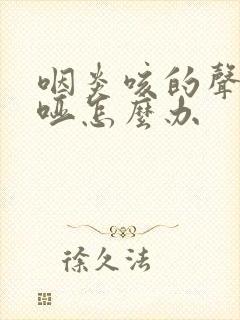 咽炎咳的聲
啞怎麼办
徐久法